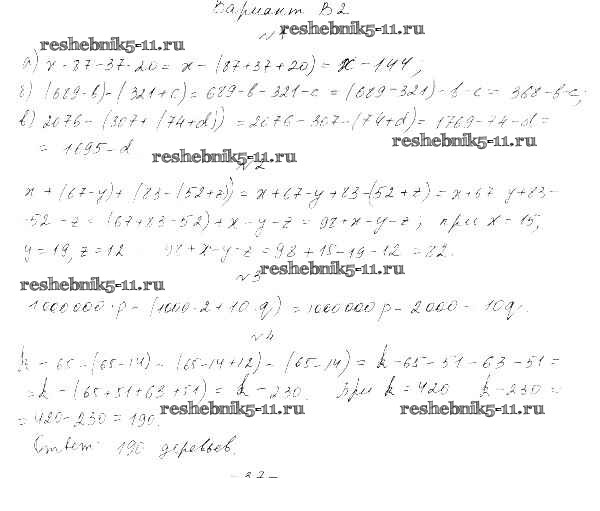 Вариант B2
reshebnik5-11.ru
№1
reshebnik5-11.ru
а) x - 87 - 37 - 20 = x - (87+37+20) = x - 144;
б) (689-b) - (321+c) = 689-b-321-c = (689-321)-b-c = 368-b-c;
в) 2076 - (307 + (74+d)) = 2076 - 307 - (74+d) = 1769-74-d =
reshebnik5-11.ru
= 1695-d
reshebnik5-11.ru
№2
x + (67-y) + (83-(52+z)) = x+67-y+83-(52+z) = x+67-y+83-
-52-z = (67+83-52)+x-y-z = 98+x-y-z; при x=15,
y=19, z=12 98+x-y-z = 98+15-19-12 = 82.
reshebnik5-11.ru
№3
reshebnik5-11.ru
1000000·p - (1000·2+10·q) = 1000000p - 2000 - 10q.
№4
k - 65 - (65-14) - (65-14+12) - (65-14) = k-65-51-63-51 =
= k - (65+51+63+51) = k - 230. При k=420 k-230 =
= 420-230 = 190.
reshebnik5-11.ru reshebnik5-11.ru
Ответ: 190 деревьев.